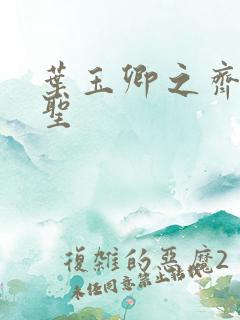 葉玉卿之齊
聖
復雜的惡魔2
未经同意禁止转载